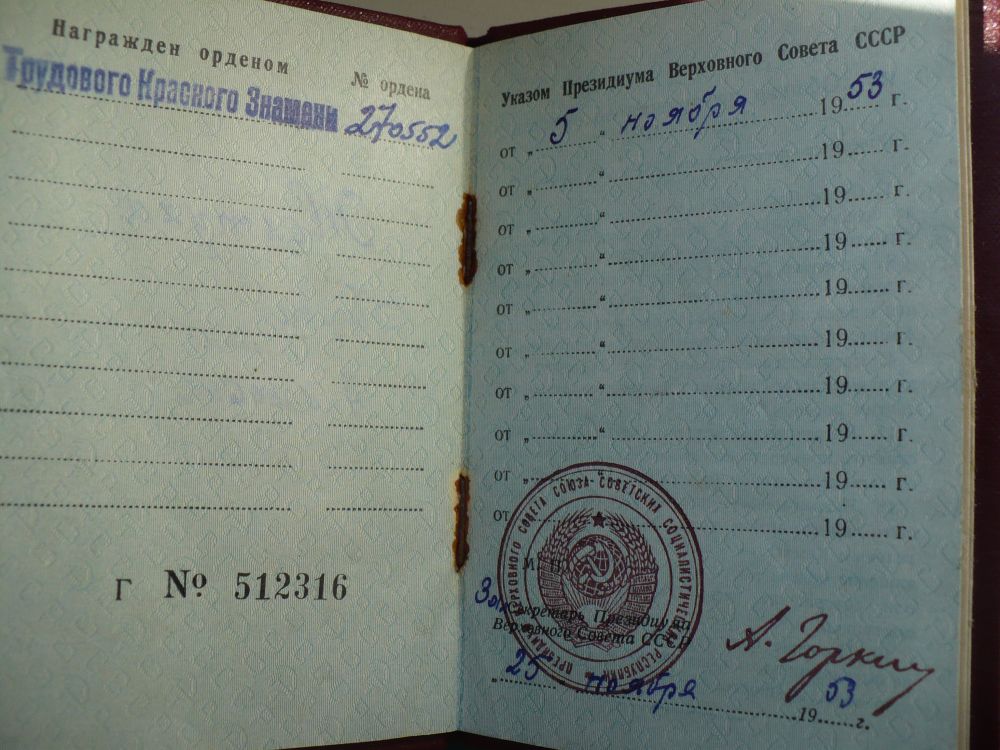 Награжден орденом
№ ордена
Трудового Красного Знамени 270552
Г № 512316
Указом Президиума Верховного Совета СССР
от „ 5 “ ноября 1953 г.
от „.........“ 19...... г.
от „.........“ 19...... г.
от „.........“ 19...... г.
от „.........“ 19...... г.
от „.........“ 19...... г.
от „.........“ 19...... г.
от „.........“ 19...... г.
от „.........“ 19...... г.
от 19...... г.
М. П.
Зам Секретарь Президиума
Верховного Совета СССР
А. Горкин
„ 25 “ ноября 1953 г.
ПРЕЗИДИУМ ВЕРХОВНОГО СОВЕТА СОЮЗА СОВЕТСКИХ СОЦИАЛИСТИЧЕСКИХ РЕСПУБЛИК